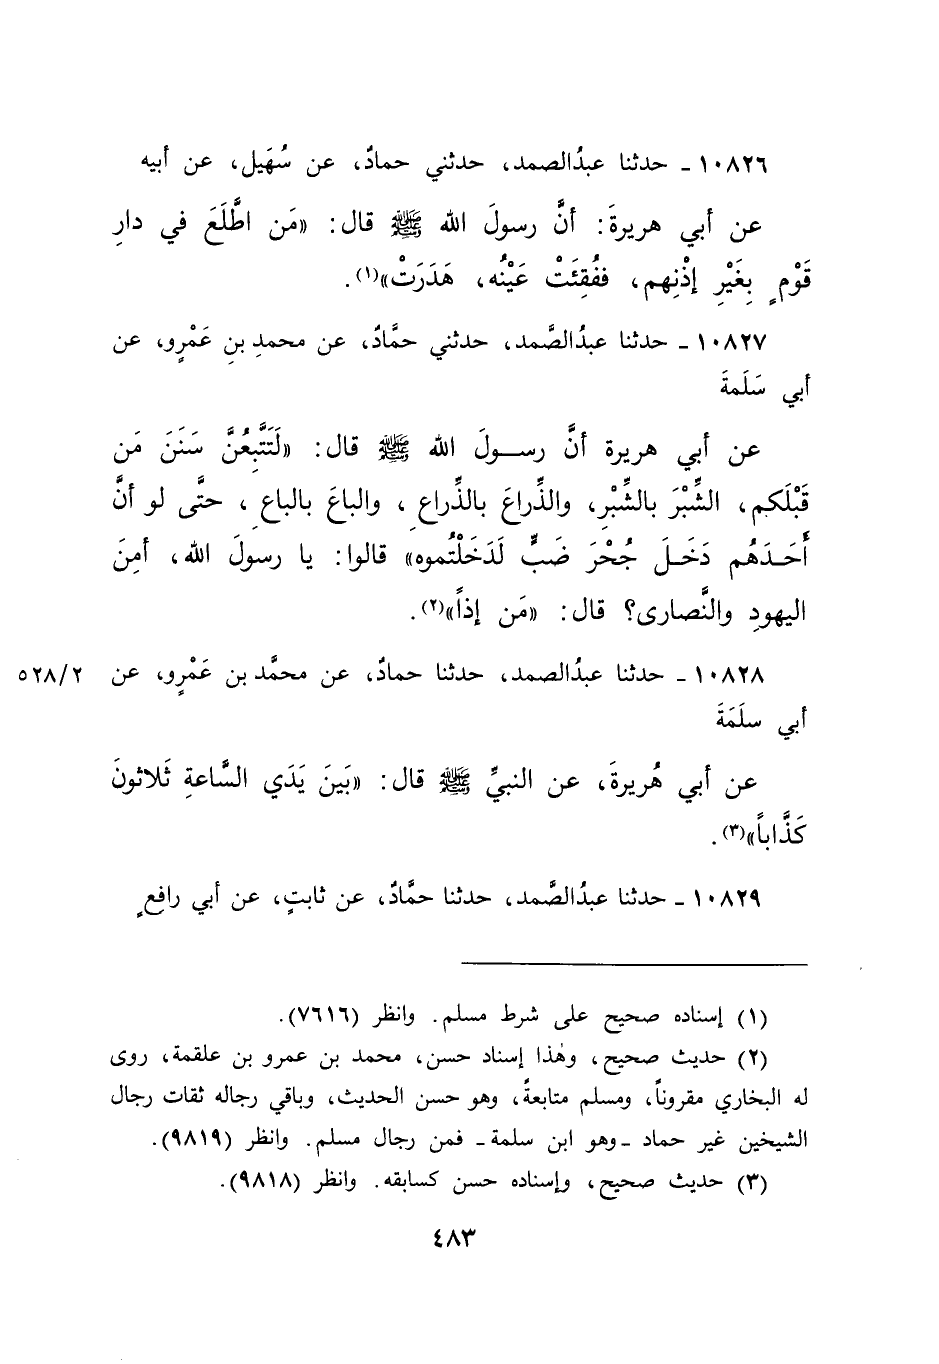 ١٠٨٢٦ ـ حدثنا عبدُالصمد، حدثني حمادٌ، عن سُهَيل، عن أبيه
عن أبي هريرةَ: أنَّ رسولَ الله ﷺ قال: «مَن اطَّلَعَ في دارِ
قَوْمٍ بِغَيْرِ إذْنِهم، ففُقِئَتْ عَيْنُه، هَدَرَتْ»(١).
١٠٨٢٧ ـ حدثنا عبدُالصَّمد، حدثني حمَّادٌ، عن محمدِ بنِ عَمْرٍو، عن
أبي سَلَمةَ
عن أبي هريرة أنَّ رسولَ الله ﷺ قال: «لَتَتَّبِعُنَّ سَنَنَ مَن
قَبْلَكم، الشِّبْرَ بالشِّبْرِ، والذِّراعَ بالذِّراعِ، والباعَ بالباعِ، حتَّى لو أنَّ
أَحَدَهُم دَخَلَ جُحْرَ ضَبٍّ لَدَخَلْتُموه» قالوا: يا رسولَ الله، أمِنَ
اليهودِ والنَّصارى؟ قال: «مَن إذاً»(٢).
١٠٨٢٨ ـ حدثنا عبدُالصمد، حدثنا حمادٌ، عن محمَّد بن عَمْرٍو، عن ٥٢٨/٢
أبي سلَمَةَ
عن أبي هُريرةَ، عن النبيِّ ﷺ قال: «بَينَ يَدَي السَّاعةِ ثَلاثونَ
كَذَّاباً»(٣).
١٠٨٢٩ ـ حدثنا عبدُالصَّمد، حدثنا حمَّادٌ، عن ثابتٍ، عن أبي رافعٍ
(١) إسناده صحيح على شرط مسلم. وانظر (٧٦١٦).
(٢) حديث صحيح، وهٰذا إسناد حسن، محمد بن عمرو بن علقمة، روى
له البخاري مقروناً، ومسلم متابعةً، وهو حسن الحديث، وباقي رجاله ثقات رجال
الشيخين غير حماد ـ وهو ابن سلمة ـ فمن رجال مسلم. وانظر (٩٨١٩).
(٣) حديث صحيح، وإسناده حسن كسابقه. وانظر (٩٨١٨).
٤٨٣